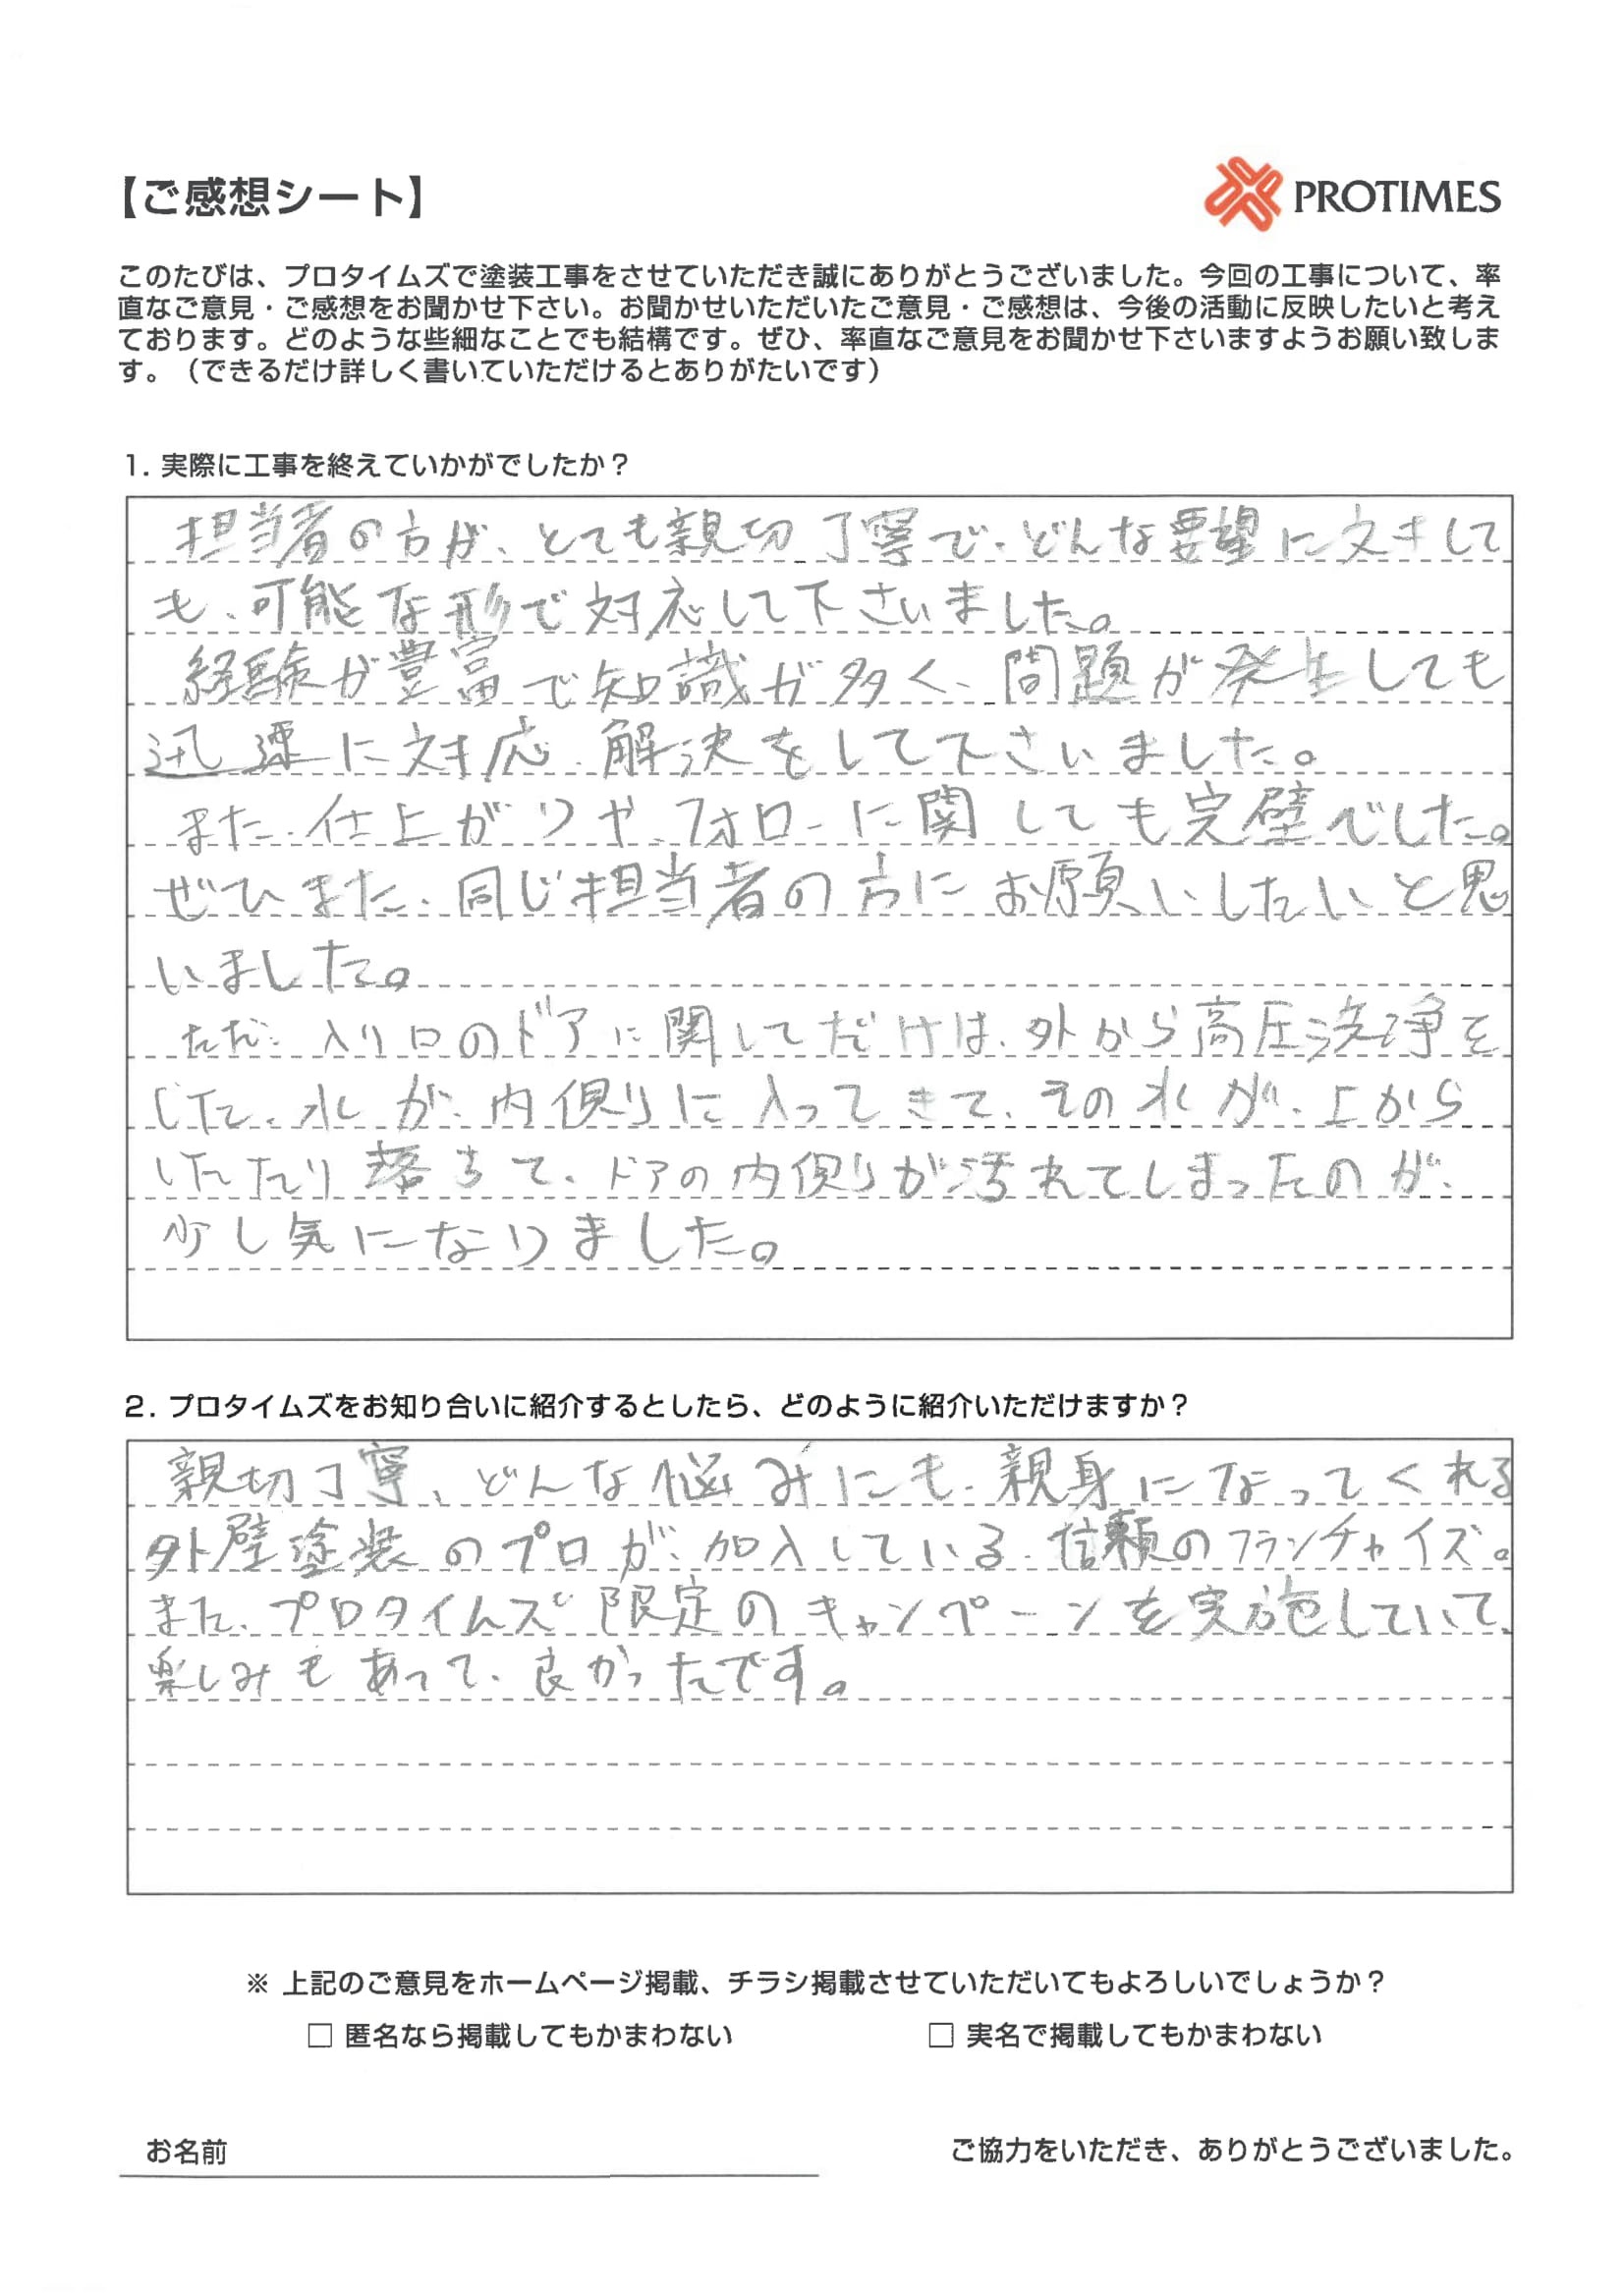 【ご感想シート】
PROTIMES
このたびは、プロタイムズで塗装工事をさせていただき誠にありがとうございました。今回の工事について、率
直なご意見・ご感想をお聞かせ下さい。お聞かせいただいたご意見・ご感想は、今後の活動に反映したいと考え
ております。どのような些細なことでも結構です。ぜひ、率直なご意見をお聞かせ下さいますようお願い致しま
す。（できるだけ詳しく書いていただけるとありがたいです）
1. 実際に工事を終えていかがでしたか？
担当者の方が、とても親切丁寧で、どんな要望に対して
も、可能な形で対応して下さいました。
経験が豊富で知識が多く、問題が発生しても
迅速に対応、解決をして下さいました。
また、仕上がりや、フォローに関しても完璧でした。
ぜひまた、同じ担当者の方にお願いしたいと思
いました。
ただ、入り口のドアに関してだけは、外から高圧洗浄を
した、水が、内側に入ってきて、その水が、上から
したたり落ちて、ドアの内側が汚れてしまったのが、
少し気になりました。
2. プロタイムズをお知り合いに紹介するとしたら、どのように紹介いただけますか？
親切丁寧、どんな悩みにも、親身になってくれる
外壁塗装のプロが、加入している、信頼のフランチャイズ。
また、プロタイムズ限定のキャンペーンを実施していて、
楽しみもあって、良かったです。
※ 上記のご意見をホームページ掲載、チラシ掲載させていただいてもよろしいでしょうか？
□ 匿名なら掲載してもかまわない □ 実名で掲載してもかまわない
お名前 ご協力をいただき、ありがとうございました。